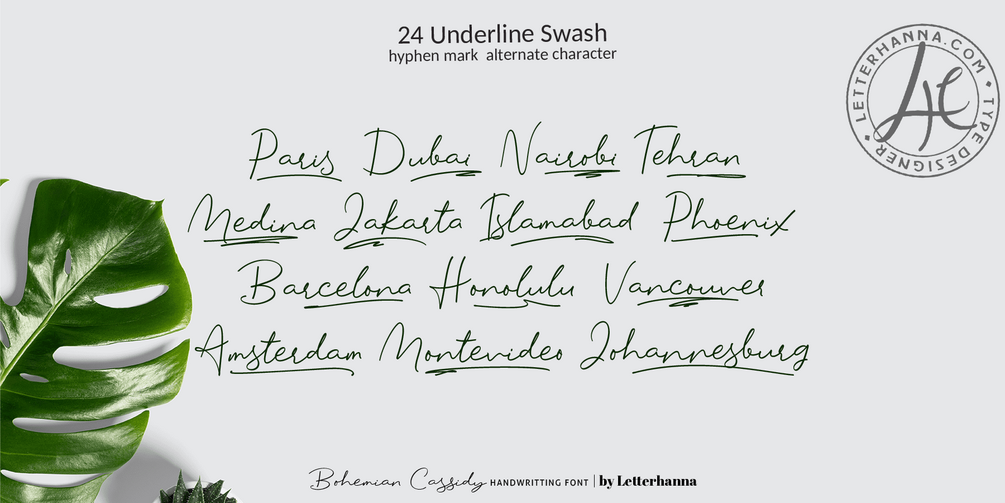 24 Underline Swash
hyphen mark alternate character
LETTERHANNA.COM • TYPE DESIGNER •
Paris Dubai Nairobi Tehran
Medina Jakarta Islamabad Phoenix
Barcelona Honolulu Vancouver
Amsterdam Montevideo Johannesburg
Bohemian Cassidy HANDWRITTING FONT | by Letterhanna